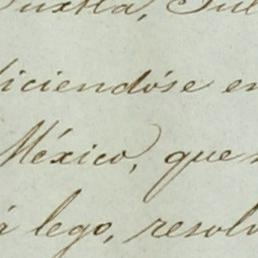 Tuxtla, Jul
diciendóse en
México, que
á lego, resolv